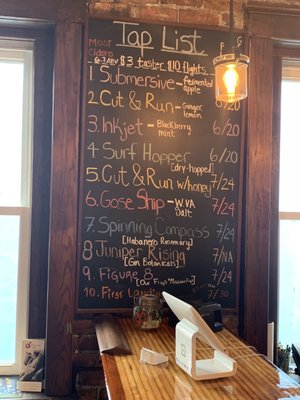 Tap List
Most Ciders 6-7 ABV
$3 taster $10 flights
P G
1 Submersive - fermented apple
2. Cut & Run - Ginger lemon 6/20
3. Inkjet - Blackberry mint 6/20
4. Surf Hopper 6/20
[dry-hopped]
5. Cut & Run w/honey 7/24
6. Gose Ship - WVA Salt 7/24
7. Spinning Compass 7/24
[Habanero Rosemary]
8 Juniper Rising 7/NA
[Gin Botanicals]
9. Figure 8 7/24
[Our First
10. First 7/30